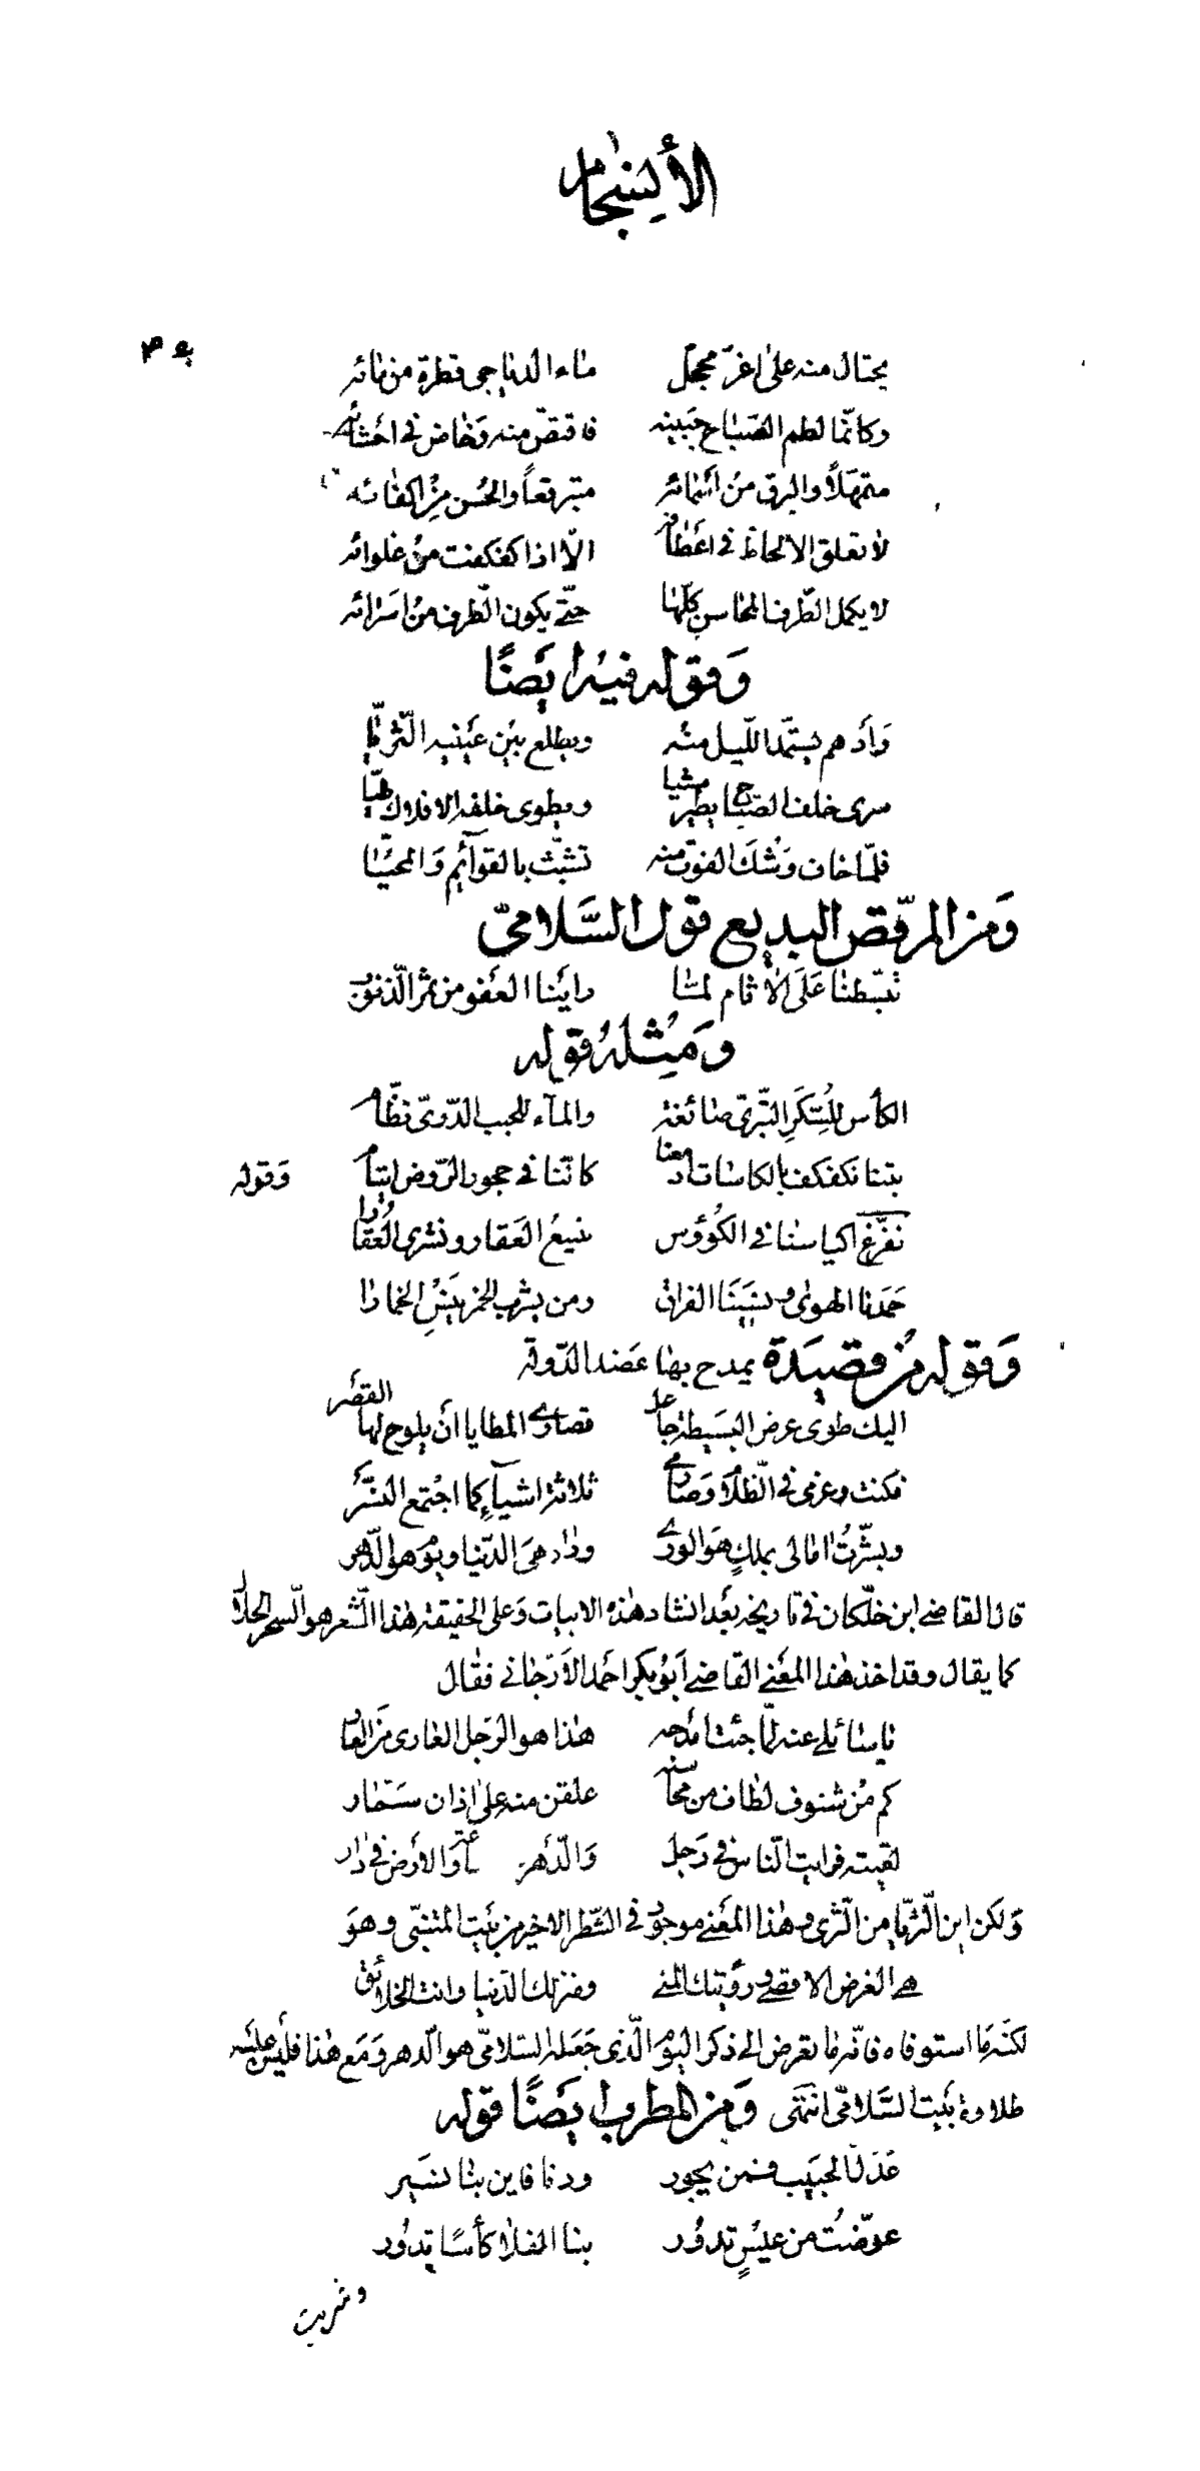 الأنسجام
يختال منه على اغرّ محجّل ماء الدياجى قطرة من مائه
وكانّما لطم الصّباح جبينه فاقتصّ منه وخاض فى احشائه
متمهّلاً والبرق من أسمائه متبرقعاً والحُسن من اكفائه
لا تعلق الالحاظ فى اعطافه الّا اذا كفكفت من غلوائه
لا يكمل الطّرف المحاسن كلّها حتّى يكون الطّرف من اسرائه
وَقوله فيه ايضًا
وَأدهم يستمدّ اللّيل منه ويطلع بين عينيه الثّريّا
سرى خلف الصّباح يطير مشيا ويطوى خلفه الافلاك طيّا
فلمّا خاف وَشك الفوت منه تشبّث بالقوآئم وَالمحيّا
وَمن المرقّص البديع قول السَّلامىّ
تبسّطنا عَلَى الاٰثام لمّا راينا العَفو من ثمر الذّنوب
وَمِثله قوله
الكأس للسّكَرِ التّبرىّ صائغة والمآء للحبب الدّرىّ نظّام
بتنا نكفكف بالكاسات ادمعنا كانّنا فى حجور الرّوض ايتام وَقوله
نفرّغ اكياسنا فى الكُؤوس نبيع العَقار ونشرى العُقارا
حَمَدنا الهوىٰ ونسينَا الفراق ومن يشرب الخمر ينسَ الخمارا
وَقوله من قصيدة يمدح بها عَضد الدّولة
اليك طوى عرض البسَيطة جاعل قصارى المطايا أن يلوح لها القصر
فكنت وعزمى فى الظّلام وَصارمى ثلاثة اشيآءٍ كما اجتمع النسّر
وبشّرتُ امالى بملكٍ هوَ الورى ودار هىَ الدّنيا ويوم هو الدّهر
قال القاضى ابن خلّكان فى تاريخه بعَد انشاد هٰذه الابيات وَعلى الحقيقة هٰذا الشّعر هو السّحر الحلال
كما يقال وقد اخذ هٰذا المعَنى القاضى اَبو بكر احمد الاَرّجانى فقال
يا سائلى عنه لمّا جئت امدحه هٰذا هو الرّجل العارى من العار
كم من شنوف لطاف من محاسنه علقن منه على اٰذان سمّار
لقيته فرايت النّاس فى رَجل وَالدّهر فى ساعة وَالارض فى دار
وَلكن اين الثّريّا من الثّرى وهٰذا المعَنى موجود فى الشّطر الاخير من بَيت المتنبّى وهوَ
هى الغرض الاقصى ورؤيتك المنى ومنزلك الدّنيا وانت الخلائق
لكنّه مَا استوفاه فانّه ما تعرض الى ذكر اليوم الّذى جَعَله السّلامىّ هو الدّهر وَمَع هٰذا فليس عليه
طلاوة بَيت السَّلامىّ انتهَى وَمن المطرب ايضًا قوله
عَذَل الحَبيب فمن يجور ودنا فاين بنا نسَير
عوّضت من عيسٍ تدور بنا الفلا كأسًا تدور
وغريب